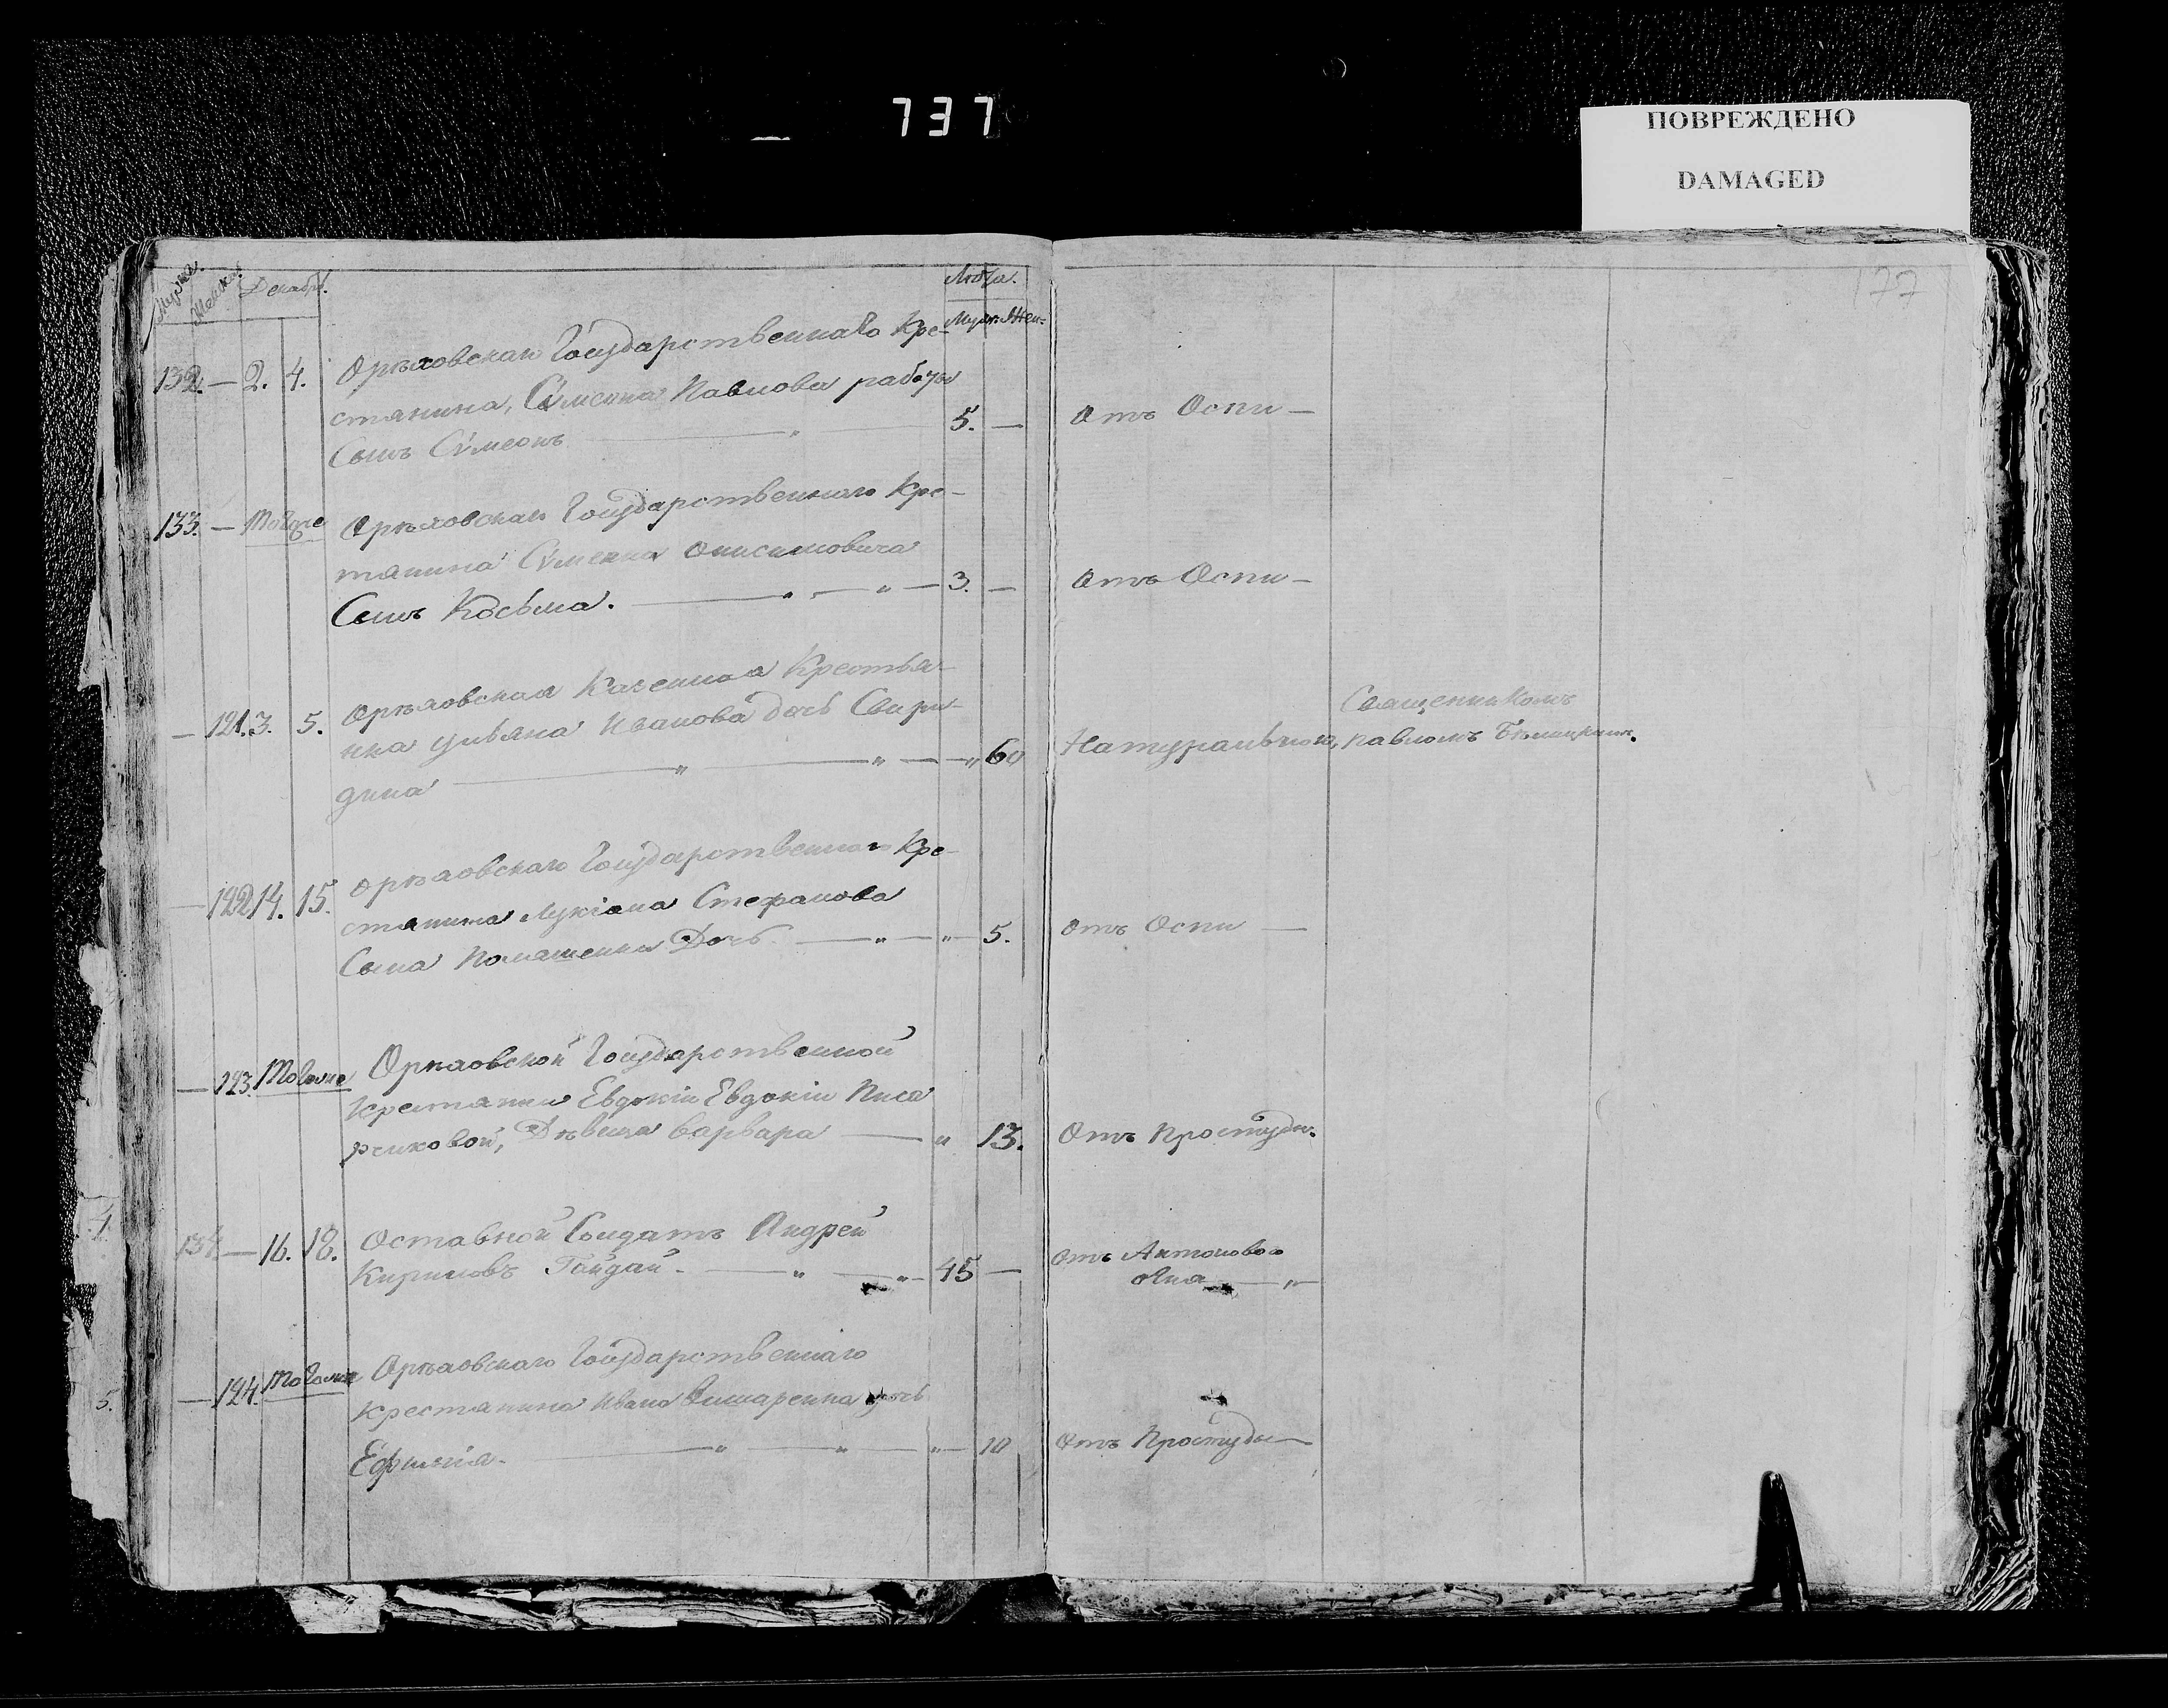 737
ПОВРЕЖДЕНО
DAMAGED
177
Декабрь.
Лѣта.
Муж. Жен.
132. — 2. 4. Орѣховскаго Государственнаго Кре-
стянина, Сѵмеона Павлова
Сынъ Сѵмеонъ 5. — отъ Оспи —
133. — Орѣховскаго Государственнаго Кре-
тянина Сѵмеона Онисимовича
Сынъ Косьма. — 3. — отъ Оспи —
— 121. 3. 5. Орѣховская Казенная Крестья-
нка Ульяна Иванова дочь Свири-
дина — 60 Натуральною, Священникомъ
Павломъ Бѣлицкимъ.
— 122 14. 15. Орѣховскаго Государственнаго Кре-
стянина Лукіана Стефанова
Сына Дочь — 5. отъ Оспи —
— 123. Тогоже Орѣховской Государственной
Крестянки Евдокіи Евдокіи Писа
рчиковой, Дѣвица Варвара — 13. Отъ Простуды.
134 — 16. 18. Оставной Солдатъ Андрей
Кириловъ Гайдай. — 45 — отъ Антонового
огна —
— 124. Тогоже Орѣховскаго Государственнаго
крестянина Ивана дочь
Ефимія. — 10 отъ Простуды —